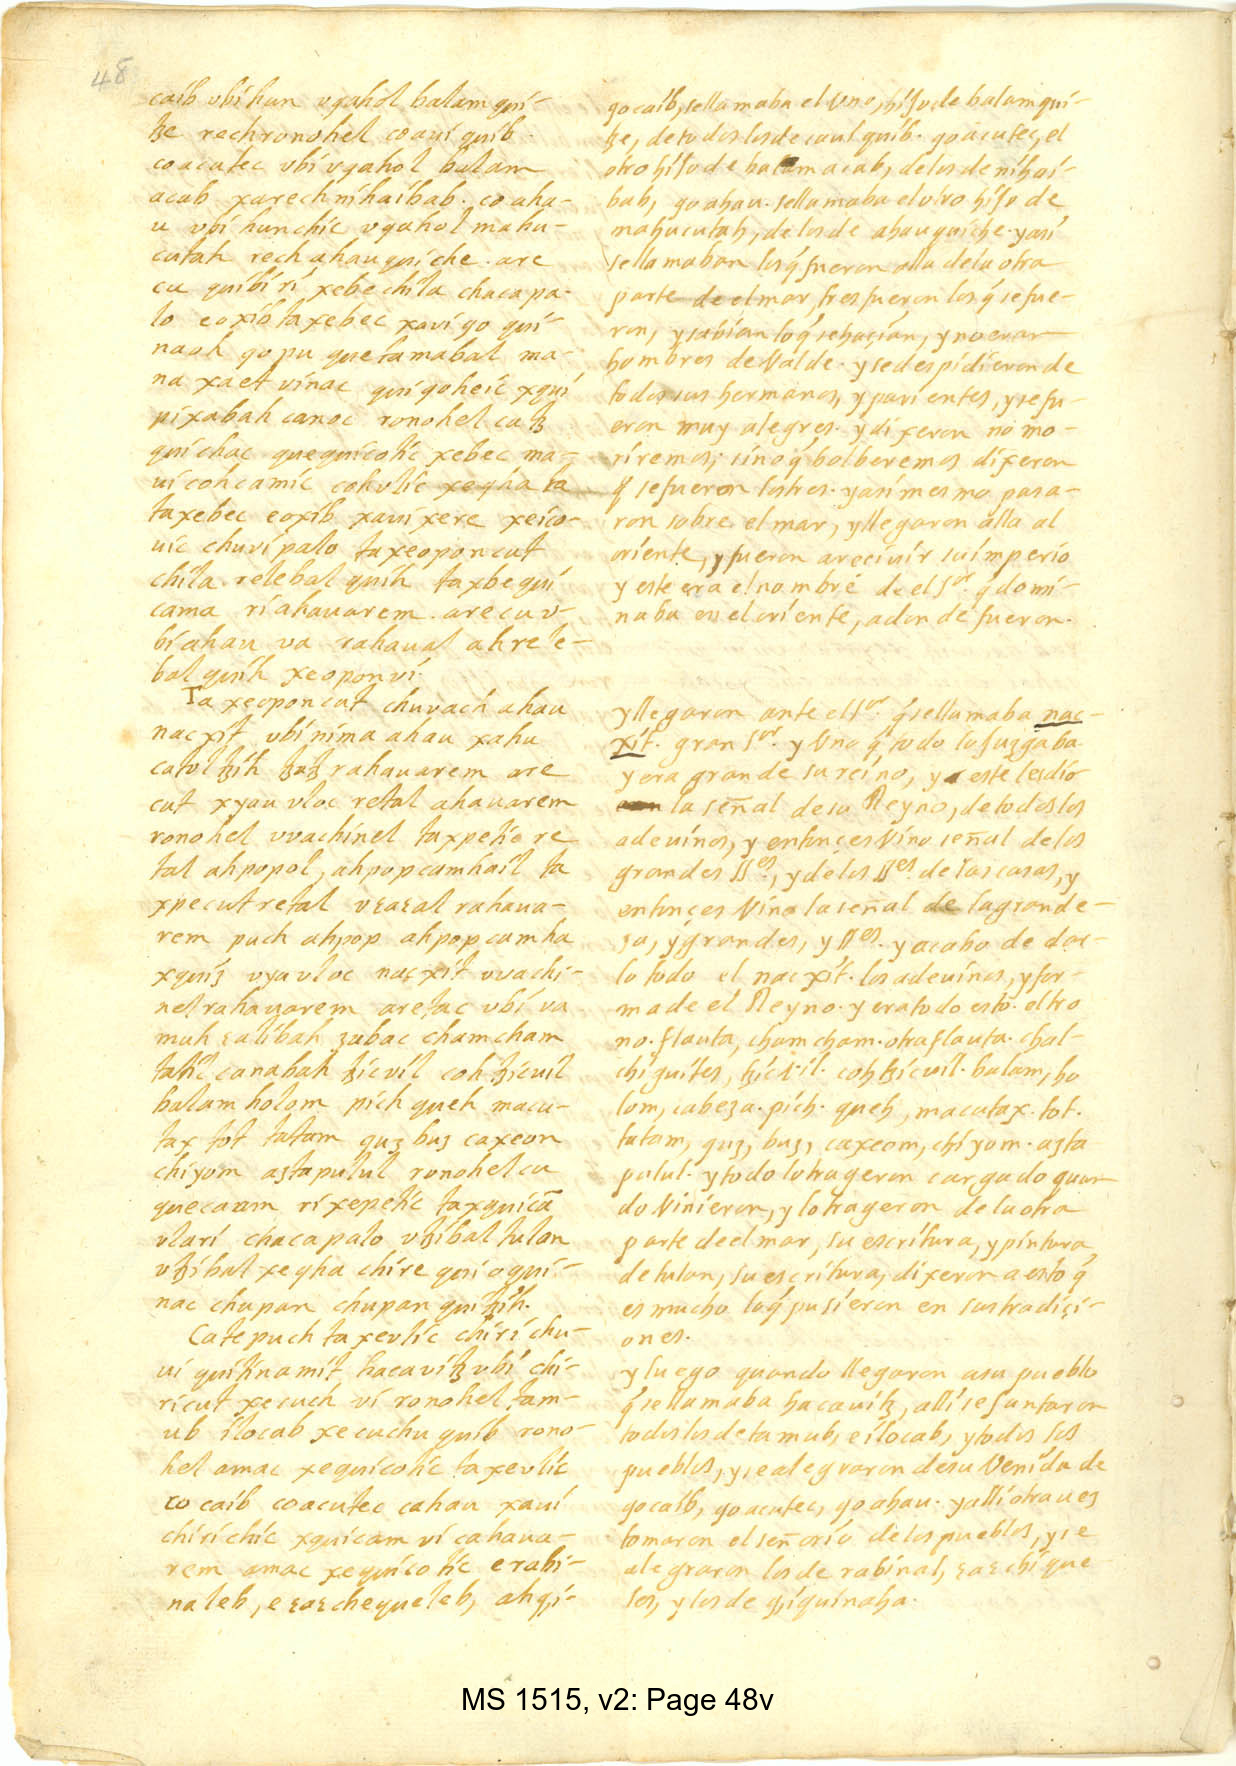 48
caib vbi hun vgahol balam qui-
tze rech ronohel coaui quib.
coacutec vbi vgahol balam
acab xarech nihaibab. co aha-
u vbi hunchic vgahol mahu-
cutah rech ahau quiche. are
cu quibi ri xebe chila chacapa-
lo eoxib taxebec xavi go qui-
naoh gopu quetamabal ma-
na xaet vinac quigoheic xqui
pixabah canoc ronohel catz
quichac quequicotic xebec ma-
ui cohcamic cohvlic xegha ta
taxebec eoxib xaui xere xeico-
uic chuvi palo taxeopon cut
chila relebal quih taxbe qui
cama ri ahauarem. are cu v-
bi ahau va rahaual ahrele-
bal quih xeopon vi.
Ta xeopon cut chuvach ahau
nacxit vbi nima ahau xahu
catol tzih tzatz rahauarem are
cut xyau vloc retal ahauarem
ronohel vvachinel taxpetic re
tal ahpopol, ahpopcamhail ta
xpe cut retal vεaεal rahaua-
rem puch ahpop ahpop camha
xquiz vyavloc nacxit vvachi-
nel rahauarem aretac vbi va
muh εalibah zubac chamcham
tatil canabah tzicvil coh tzicuil
balam holom pich queh macu-
tax tot tatam quz buz caxeon
chiyom aztapulul ronohel cu
quecaam ri xepetic taxquicā
vlari chacapalo vtzibal tulan
vtzibal xegha chire qui oqui-
nac chupan chupan quitzih.
Catepuch taxevlic chiri chu-
ui quitinamit hacavitz vbi chi-
ri cut xecuch vi ronohel tam-
ub ilocab xecuchu quib rono-
hel amac xequicotic taxevlic
co caib coacutec cahau xaui
chirichic xquicam vi cahaua-
rem amac xequicotic erabi-
naleb, e εaεchequeleb, ahqi-
gocaib, sellamaba el Vno, hiJo de balam qui-
tze, de todos los de caui quib. goacutec, el
otro hiJo de balam acab, de los de nihai-
bab, go ahau. sellamaba el otro hiJo de
mahucutah, de los de ahau quiche. y asi
sellamaban los q̃ fueron alla de la otra
parte de el mar, tres fueron los q̃ se fue-
ron, y sabian lo q̃ se haçian, y no eran
hombres de Valde. y se despidieron de
todos sus hermanos, y parientes, y se fu-
eron muy alegres. y dixeron no mo-
riremos; sino q̃ bolberemos dixeron
q̃ se fueron los tres. y asi mesmo pasa-
ron sobre el mar, y llegaron alla al
oriente, y fueron a reciuir su imperio
y este era el nombre de el Sor. q̃ domi-
naba en el oriente, adonde fueron.
y llegaron ante el Sor. q̃ sellamaba nac-
xit. gran Sor. y Vno q̃ todo lo Juzgaba
y era grande su reino, y este les dio
la señal de su Reyno, de todos los
adeuinos, y entonçes Vino señal de los
grandes SSes, y de los SSes. de las casas, y
entonçes Vino la señal de la grande-
za, y grandes, y SSes. y acabo de dar-
lo todo el nacxit. los adeuinos, y for-
ma de el Reyno. y era todo esto. el tro
no. flauta, cham cham. otra flauta. chal-
chiguites, tzicvil. coh tzicuil. balam, ho
lom, cabeza. pich. queh, macutax. tot.
tatam, quz, buz, caxeom, chiyom. azta
pulul. y todo lo trageron cargado quan
do Vinieron, y lo trageron de la otra
parte de el mar, su escritura, y pintura
de tulan, su escritura, dixeron a esto q̃
es mucho lo q̃ pusieron en sus tradiçi-
ones.
y luego quando llegaron a su pueblo
q̃ sellamaba hacauitz, alli se Juntaron
todos los de tamub, e ilocab, y todos los
pueblos, y se alegraron de su Venida de
gocaib, goacutec, go ahau. y alli otra uez
tomaron el señorio de los pueblos, y se
alegraron los de rabinal, εaεchique-
les, y los de qiquinaha.
MS 1515, v2: Page 48v